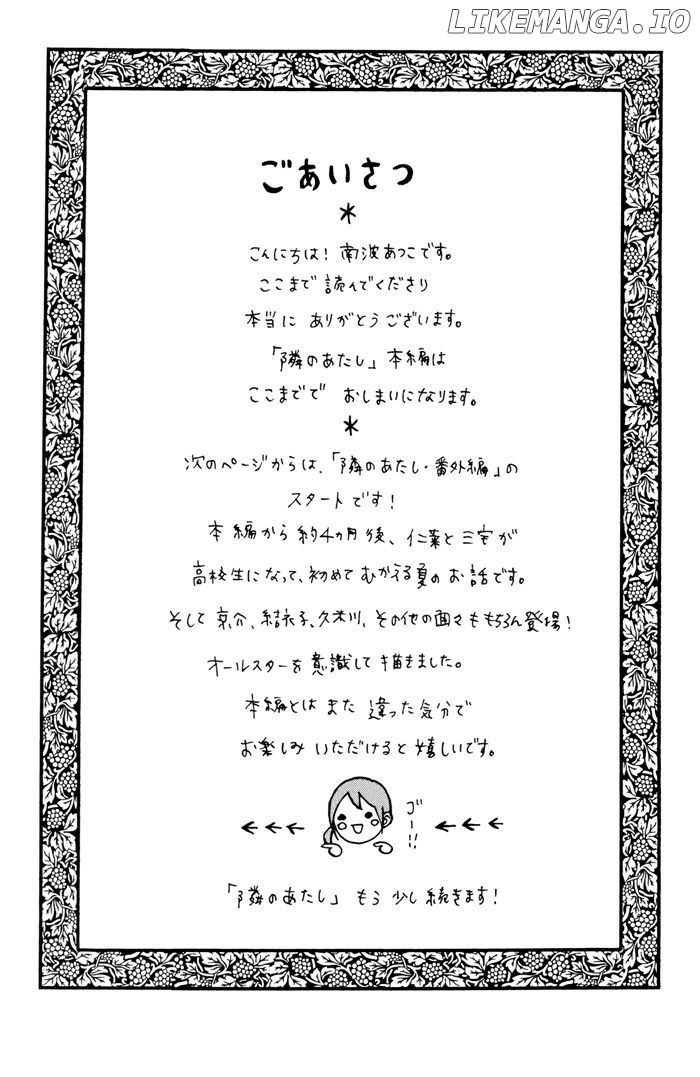 LIKEMANGA.IO
ごあいさつ
*
こんにちは! 南波あつこです。
ここまで 読んでくださり
本当に ありがとうございます。
「隣のあたし」本編は
ここまでで おしまいになります。
*
次のページからは、「隣のあたし・番外編」の
スタートです!
本編から約4ヵ月後、仁菜と三宅が
高校生になって、初めて むかえる夏の お話です。
そして 京介、結衣子、久米川、その他の面々ももちろん登場!
オールスターを意識して描きました。
本編とは また 違った気分で
お楽しみ いただけると嬉しいです。
←←← ゴー!! ←←←
「隣のあたし」 もう 少し続きます!